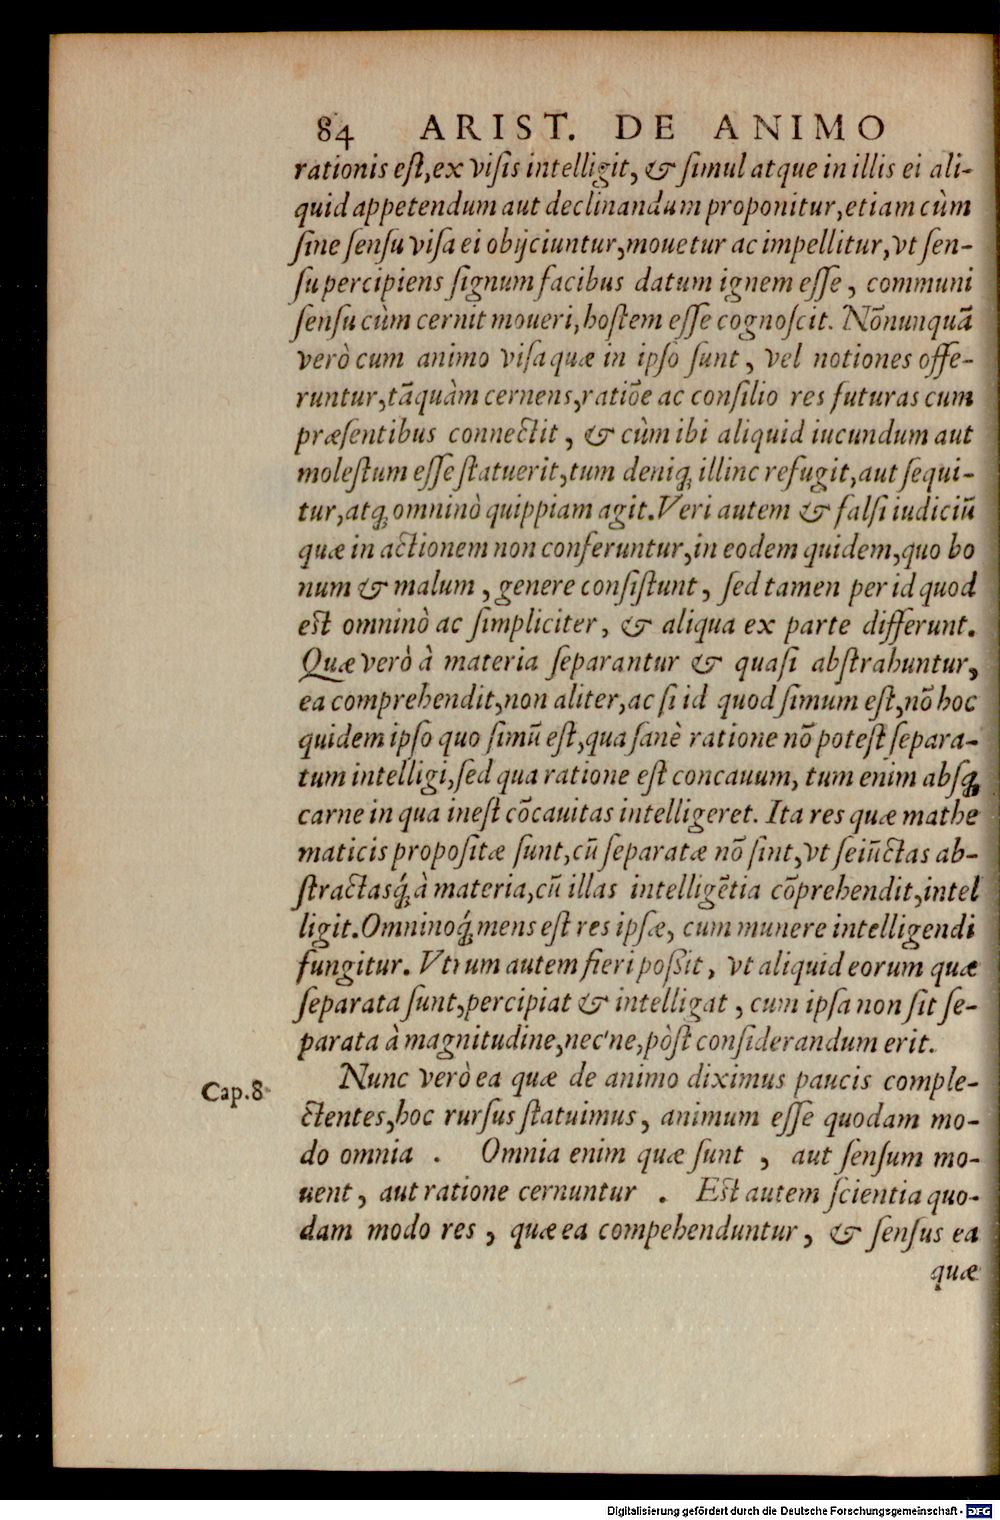 84 ARIST. DE ANIMO
rationis eſt, ex viſis intelligit, & ſimul atque in illis ei ali-
quid appetendum aut declinandum proponitur, etiam cùm
ſine ſenſu viſa ei obijciuntur, mouetur ac impellitur, vt ſen-
ſu percipiens ſignum facibus datum ignem eſſe, communi
ſenſu cùm cernit moueri, hoſtem eſſe cognoſcit. Nõnunquã
verò cum animo viſa quæ in ipſo ſunt, vel notiones offe-
runtur, tãquàm cernens, ratiõe ac conſilio res futuras cum
præſentibus connectit, & cùm ibi aliquid iucundum aut
moleſtum eſſe ſtatuerit, tum deniq; illinc refugit, aut ſequi-
tur, atq; omninò quippiam agit. Veri autem & falſi iudiciũ
quæ in actionem non conferuntur, in eodem quidem, quo bo
num & malum, genere conſiſtunt, ſed tamen per id quod
est omninò ac ſimpliciter, & aliqua ex parte differunt.
Quæ verò à materia ſeparantur & quaſi abſtrahuntur,
ea comprehendit, non aliter, ac ſi id quod ſimum eſt, nõ hoc
quidem ipſo quo ſimũ eſt, qua ſanè ratione nõ poteſt ſepara-
tum intelligi, ſed qua ratione eſt concauum, tum enim abſq;
carne in qua ineſt cõcauitas intelligeret. Ita res quæ mathe
maticis propoſitæ ſunt, cũ ſeparatæ nõ ſint, vt ſeiũctas ab-
ſtractasq́; à materia, cũ illas intelligẽtia cõprehendit, intel
ligit. Omninoq́; mens eſt res ipſæ, cum munere intelligendi
fungitur. Vtrum autem fieri poſſit, vt aliquid eorum quæ
ſeparata ſunt, percipiat & intelligat, cum ipſa non ſit ſe-
parata à magnitudine, nec'ne, pòſt conſiderandum erit.
Cap. 8 Nunc verò ea quæ de animo diximus paucis comple-
ctentes, hoc rurſus ſtatuimus, animum eſſe quodam mo-
do omnia . Omnia enim quæ ſunt , aut ſenſum mo-
uent, aut ratione cernuntur . Eſt autem ſcientia quo-
dam modo res , quæ ea compehenduntur, & ſenſus ea
quæ
Digitalisierung gefördert durch die Deutsche Forschungsgemeinschaft - DFG